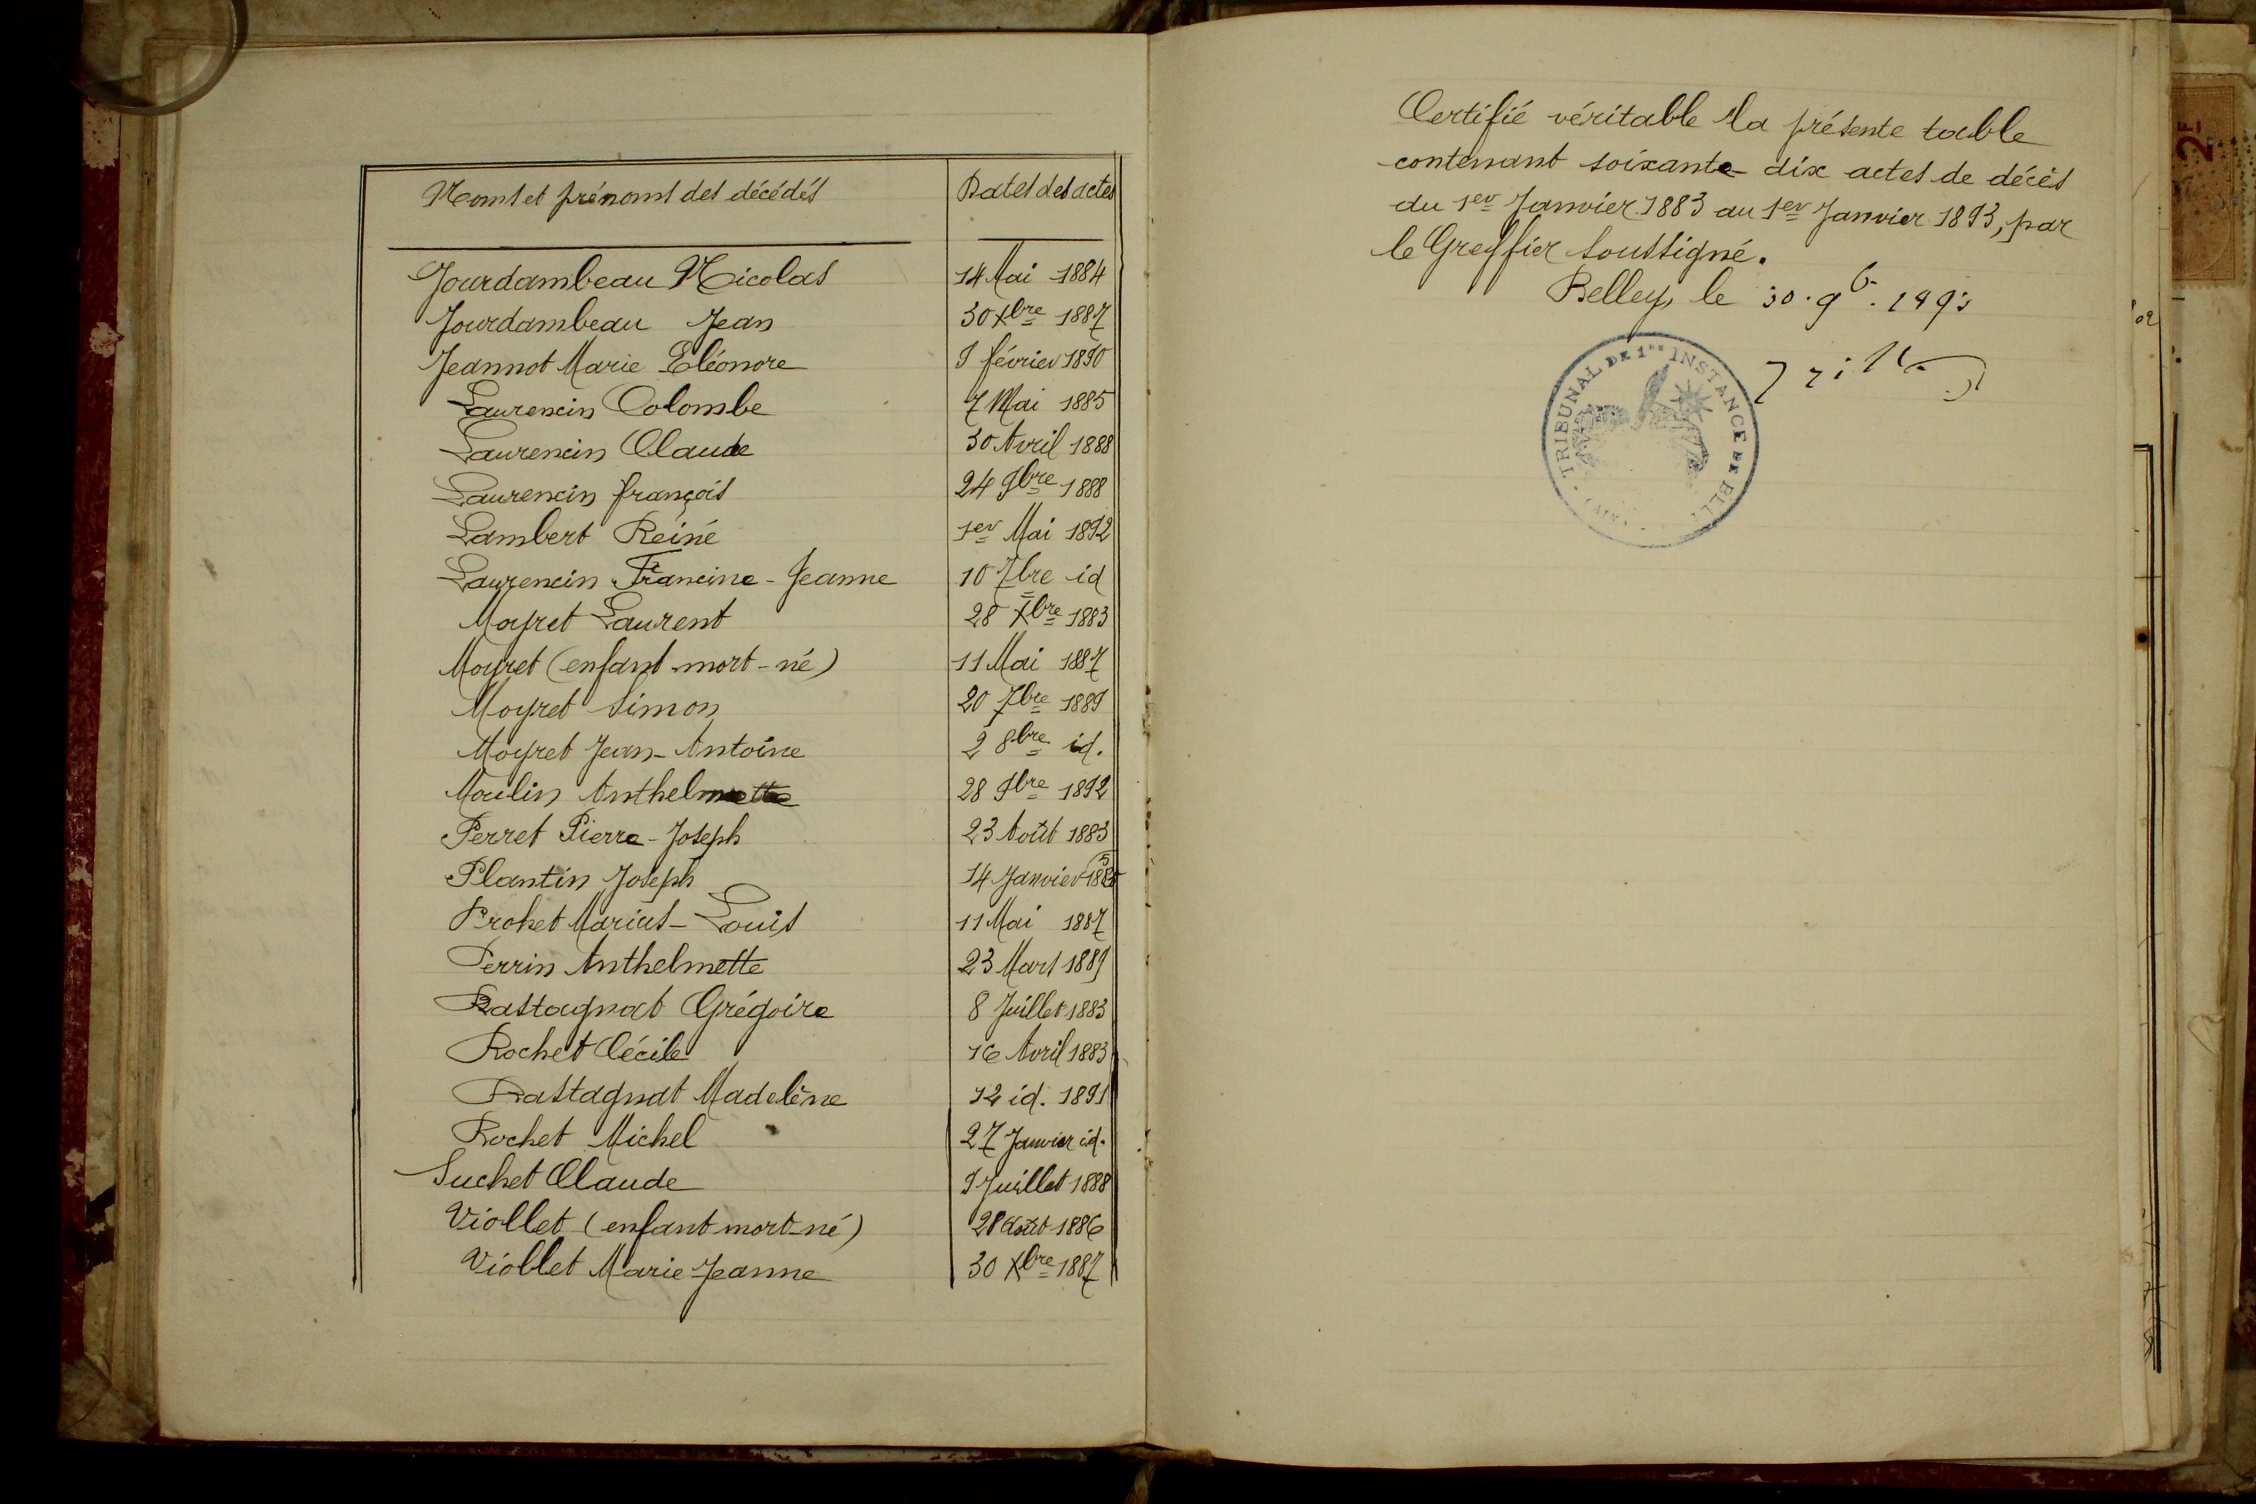 Noms et prénoms des décédés | Dates des actes
Jourdambeau Nicolas | 14 Mai 1884
Jourdambeau Jean | 30 Xbre 1887
Jeannot Marie Eléonore | 9 février 1890
Laurencin Colombe | 7 Mai 1885
Laurencin Claude | 30 Avril 1888
Laurencin françois | 24 9bre 1888
Lambert Reiné | 1er Mai 1892
Laurencin Francine-Jeanne | 10 7bre id
Moyret Laurent | 28 Xbre 1883
Moyret (enfant mort-né) | 11 Mai 1887
Moyret Simon | 20 7bre 1889
Moyret Jean-Antoine | 2 8bre id.
Moulin Anthelmette | 28 9bre 1892
Perret Pierre-Joseph | 23 Août 1883
Plantin Joseph | 14 Janvier 1885
Prohet Marius-Louis | 11 Mai 1887
Perrin Anthelmette | 23 Mars 1889
Rastagnat Grégoire | 8 Juillet 1883
Rochet Cécile | 16 Avril 1883
Rastagnat Madelène | 12 id. 1891
Rochet Michel | 27 Janvier id.
Suchet Claude | 9 Juillet 1888
Viollet (enfant mort-né) | 28 Août 1886
Viollet Marie-Jeanne | 30 Xbre 1887
Certifié véritable la présente table
contenant soixante-dix actes de décès
du 1er Janvier 1883 au 1er Janvier 1893, par
le Greffier soussigné.
Belley, le 30. 9b. 1893
TRIBUNAL DE 1re INSTANCE DE BELL
2F